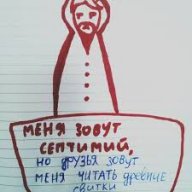 МЕНЯ ЗОВУТ
СЕПТИМИЙ,
НО ДРУЗЬЯ ЗОВУТ
МЕНЯ ЧИТАТЬ ДРЕВНИЕ
СВИТКИ